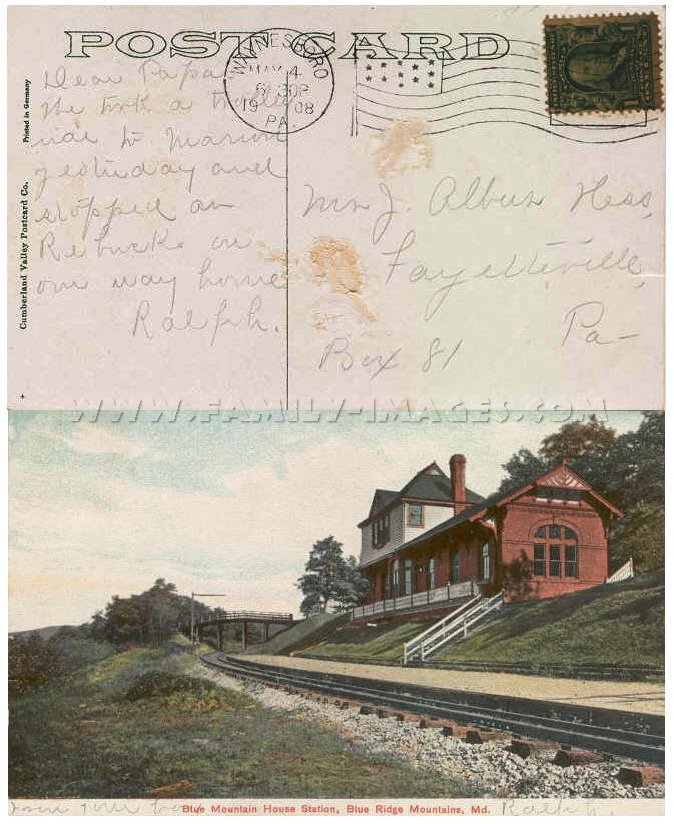 POST CARD
WAYNESBORO
MAY 4
6 30P
1908
PA.
Dear Papa
We took a trolley
ride to Marion
yesterday and
stopped on
Rebucks on
our way home
Ralph.
Mr J. Albus Hess,
Fayetteville,
Pa-
Box 81
Printed in Germany
Cumberland Valley Postcard Co.
WWW.FAMILY-IMAGES.COM
from your boy
Blue Mountain House Station, Blue Ridge Mountains, Md.
Ralph.